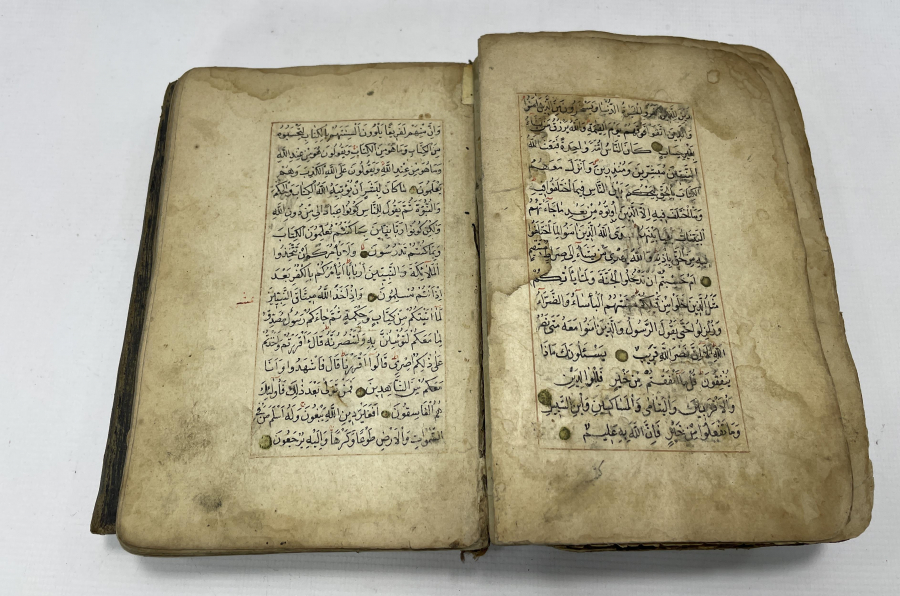 زين للذين كفروا الحيوة الدنيا ويسخرون من الذين امنوا
والذين اتقوا فوقهم يوم القيمة والله يرزق من يشاء
بغير حساب كان الناس امة واحدة فبعث الله
النبيين مبشرين ومنذرين وانزل معهم
الكتاب بالحق ليحكم بين الناس فيما اختلفوا فيه
وما اختلف فيه الا الذين اوتوه من بعد ما جاءتهم
البينات بغيا بينهم فهدى الله الذين امنوا لما اختلفوا
فيه من الحق باذنه والله يهدى من يشاء الى صراط مستقيم
ام حسبتم ان تدخلوا الجنة ولما ياتكم
مثل الذين خلوا من قبلكم مستهم البأساء والضراء
وزلزلوا حتى يقول الرسول والذين امنوا معه متى نصر
الله الا ان نصر الله قريب يسئلونك ماذا
ينفقون قل ما انفقتم من خير فللوالدين
والاقربين واليتامى والمساكين وابن السبيل
وما تفعلوا من خير فان الله به عليم
وان منهم لفريقا يلوون السنتهم بالكتاب لتحسبوه
من الكتاب وما هو من الكتاب ويقولون هو من عند الله
وما هو من عند الله ويقولون على الله الكذب وهم
يعلمون ما كان لبشر ان يؤتيه الله الكتاب والحكم
والنبوة ثم يقول للناس كونوا عبادا لى من دون الله
ولكن كونوا ربانيين بما كنتم تعلمون الكتاب
وبما كنتم تدرسون ولا يأمركم ان تتخذوا
الملائكة والنبيين اربابا ايأمركم بالكفر بعد
اذ انتم مسلمون واذ اخذ الله ميثاق النبيين
لما اتيتكم من كتاب وحكمة ثم جاءكم رسول مصدق
لما معكم لتؤمنن به ولتنصرنه قال أقررتم واخذتم
على ذلكم اصرى قالوا اقررنا قال فاشهدوا وانا
معكم من الشاهدين فمن تولى بعد ذلك فاولئك
هم الفاسقون افغير دين الله يبغون وله اسلم من فى
السموات والارض طوعا وكرها واليه يرجعون